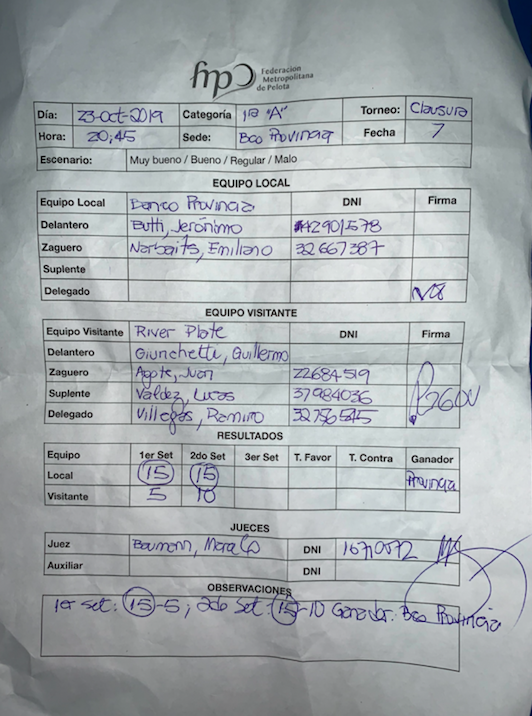 fmp Federación
Metropolitana
de Pelota
Día: 23-Oct-2019 Categoría 1ra "A" Torneo: Clausura
Hora: 20,45 Sede: Bco Provincia Fecha 7
Escenario: Muy bueno / Bueno / Regular / Malo
EQUIPO LOCAL
Equipo Local Banco Provincia DNI Firma
Delantero Butti, Jerónimo 42901578
Zaguero Narbaits, Emiliano 32667387
Suplente
Delegado
EQUIPO VISITANTE
Equipo Visitante River Plate DNI Firma
Delantero Giunchetti, Guillermo
Zaguero Agote, Juan 22684519
Suplente Valdez, Lucas 37984036
Delegado Villegas, Ramiro 32756545
RESULTADOS
Equipo 1er Set 2do Set 3er Set T. Favor T. Contra Ganador
Local 15 15 Provincia
Visitante 5 10
JUECES
Juez DNI 16710072
Auxiliar DNI
OBSERVACIONES
1er set: 15-5; 2do Set: 15-10 Ganador: Bco Provincia